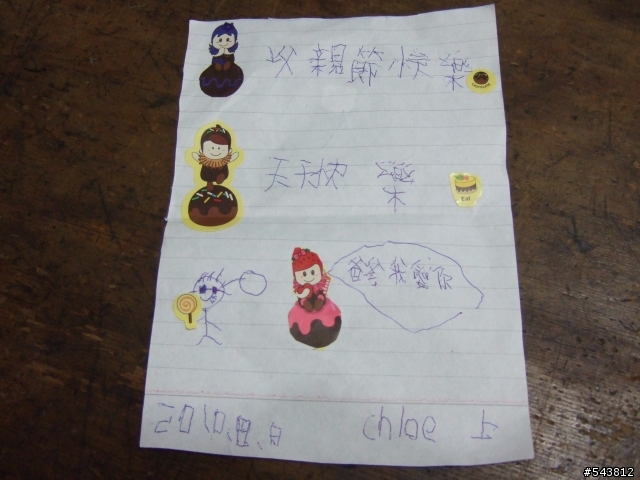 父親節快樂
天天快樂
Eat
爸爸我愛你
2010.
chloe 上
#543812